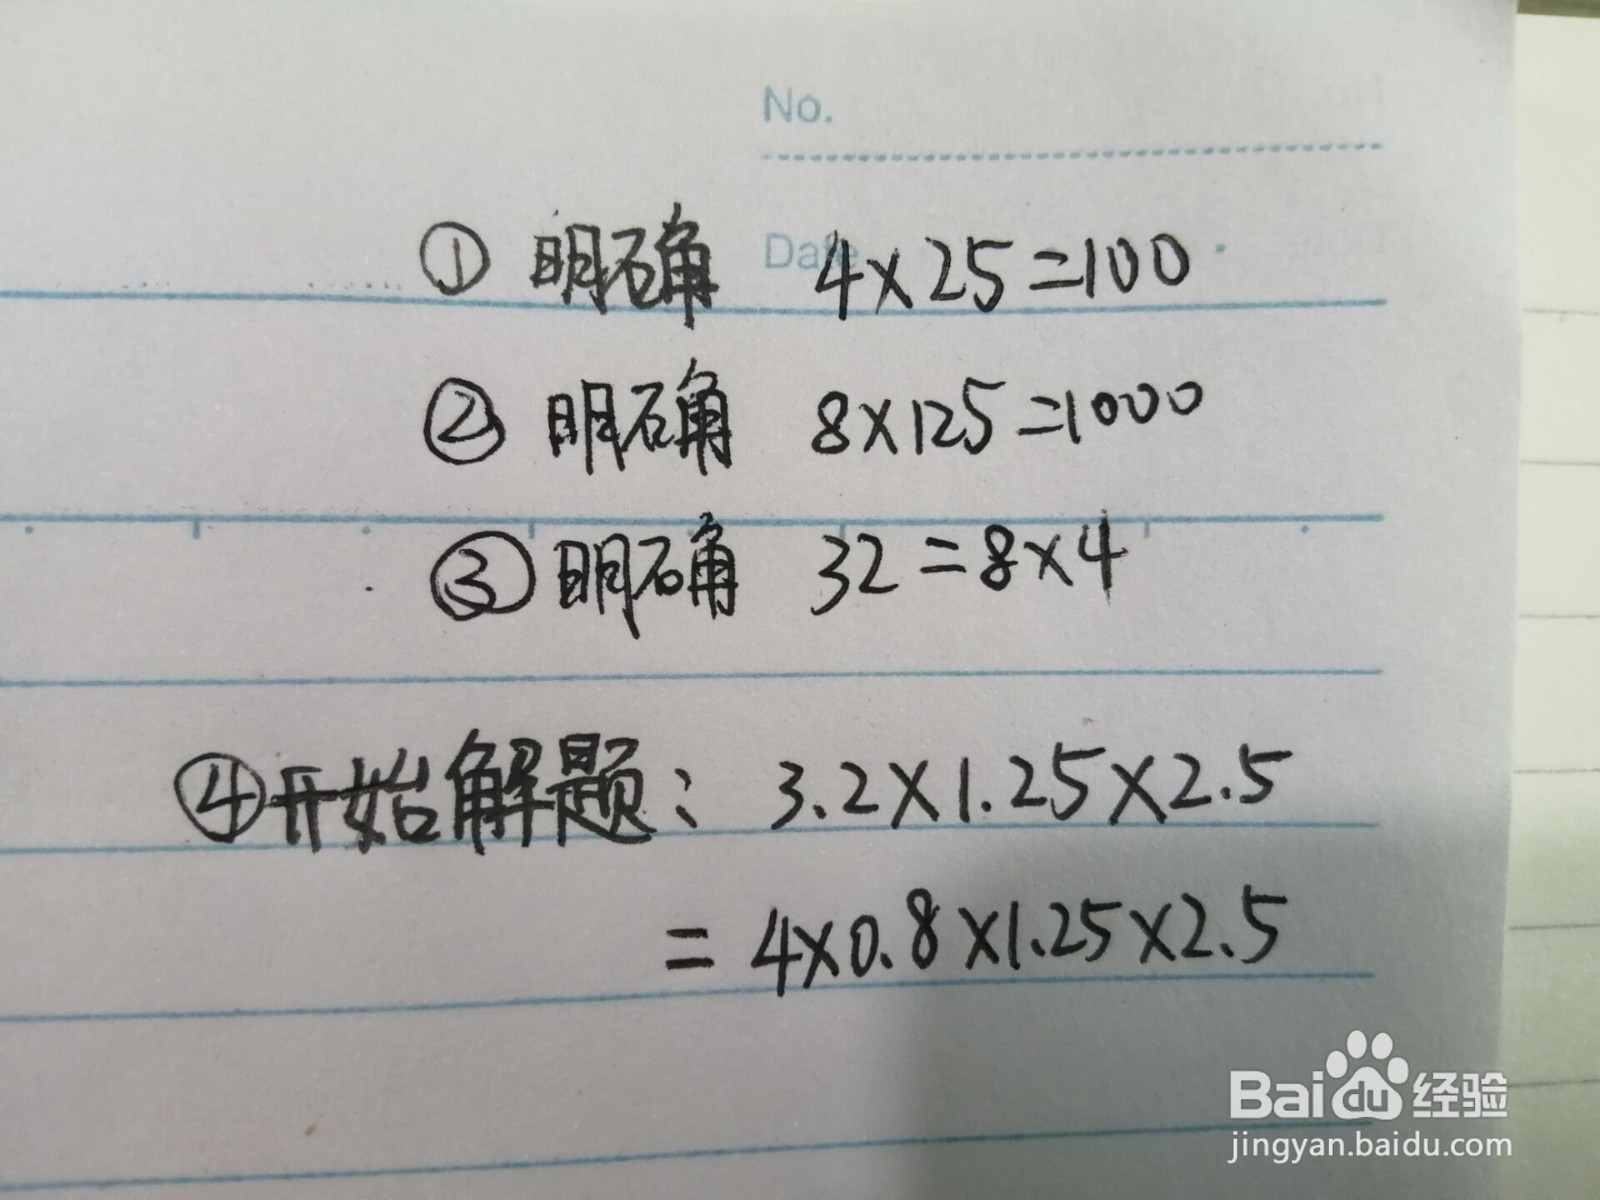 No.
Date
① 明确 4×25=100
② 明确 8×125=1000
③ 明确 32=8×4
④开始解题: 3.2×1.25×2.5
=4×0.8×1.25×2.5
Baidu经验
jingyan.baidu.com